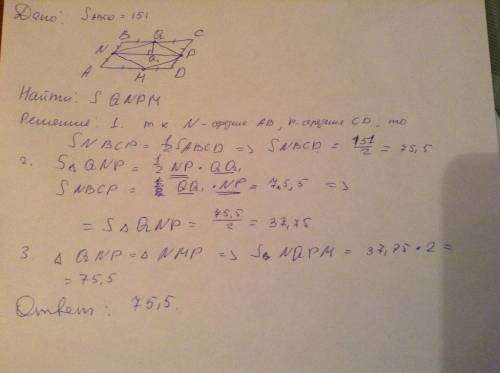 Дано: SABCD = 151
B Q C
N Q₁ P
A M D
Найти: S QNPM
Решение: 1. т к N - середине AB, P - середине CD, то
SNBCP = 1/2 SABCD => SNBCD = 151/2 = 75,5
2. S△QNP = 1/2 NP · QQ₁
SNBCP = QQ₁ · NP = 75,5 =>
= S△QNP = 75,5/2 = 37,75
3 △QNP = △NMP => S NQPM = 37,75 · 2 =
= 75,5
Ответ: 75,5.